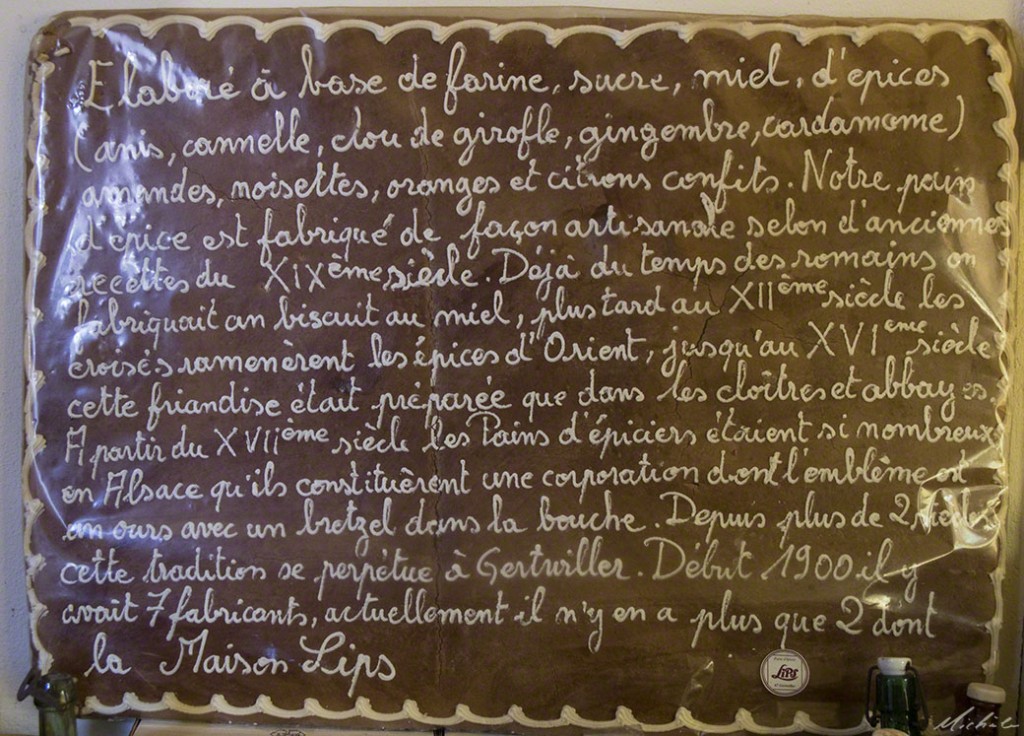 Elaboré à base de farine, sucre, miel, d'epices
(anis, cannelle, clou de girofle, gingembre, cardamome)
amandes, noisettes, oranges et citrons confits. Notre pain
d'epice est fabriqué de façon artisanale selon d'anciennes
recettes du XIXème siècle. Déjà du temps des romains on
fabriquait un biscuit au miel, plus tard au XIIème siècle les
croisés ramenèrent les épices d'Orient, jusqu'au XVIeme siècle
cette friandise était préparée que dans les cloîtres et abbayes.
A partir du XVIIème siècle les Pains d'épiciers étaient si nombreux
en Alsace qu'ils constituèrent une corporation dont l'emblème est
un ours avec un bretzel dans la bouche. Depuis plus de 2 siècles
cette tradition se perpétue à Gertwiller. Début 1900 il y
avait 7 fabricants, actuellement il n'y en a plus que 2 dont
la Maison Lips
LIPS